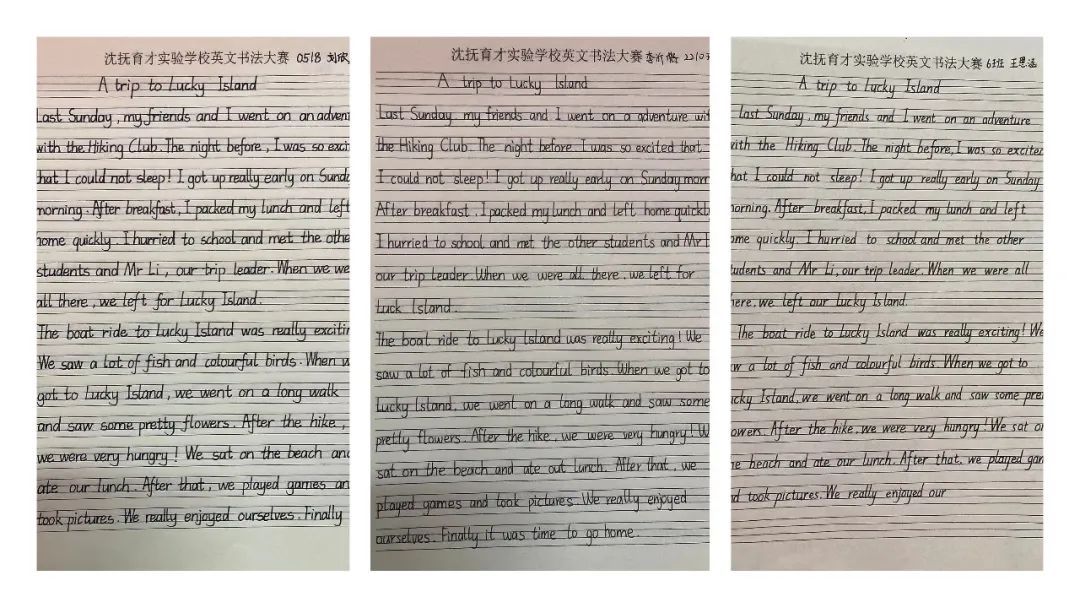 沈抚育才实验学校英文书法大赛 0518
A trip to Lucky Island
Last Sunday, my friends and I went on an adven
with the Hiking Club. The night before, I was so exci
that I could not sleep! I got up really early on Sunda
morning. After breakfast, I packed my lunch and left
home quickly. I hurried to school and met the othe
students and Mr Li, our trip leader. When we we
all there, we left for Lucky Island.
The boat ride to Lucky Island was really excitin
We saw a lot of fish and colourful birds. When w
got to Lucky Island, we went on a long walk
and saw some pretty flowers. After the hike,
we were very hungry! We sat on the beach and
ate our lunch. After that, we played games an
took pictures. We really enjoyed ourselves. Finally
沈抚育才实验学校英文书法大赛
A trip to Lucky Island
Last Sunday, my friends and I went on a adventure wit
the Hiking Club. The night before I was so excited that
I could not sleep! I got up really early on Sunday morn
After breakfast, I packed my lunch and left home quickl
I hurried to school and met the other students and Mr L
our trip leader. When we were all there, we left for
Luck Island.
The boat ride to Lucky Island was really exciting! We
saw a lot of fish and colourful birds. When we got to
Lucky Island, we went on a long walk and saw some
pretty flowers. After the hike, we were very hungry! W
sat on the beach and ate out lunch. After that, we
played games and took pictures. We really enjoyed
ourselves. Finally it was time to go home.
沈抚育才实验学校英文书法大赛 63班 王思涵
A trip to Lucky Island
Last Sunday, my friends and I went on an adventure
with the Hiking Club. The night before, I was so excited
hat I could not sleep! I got up really early on Sunday
norning. After breakfast, I packed my lunch and left
ome quickly. I hurried to school and met the other
tudents and Mr Li, our trip leader. When we were all
here, we left our Lucky Island.
The boat ride to Lucky Island was really exciting! We
aw a lot of fish and colourful birds. When we got to
ucky Island, we went on a long walk and saw some pret
owers. After the hike, we were very hungry! We sat on
he beach and ate our lunch. After that, we played gam
d took pictures. We really enjoyed our